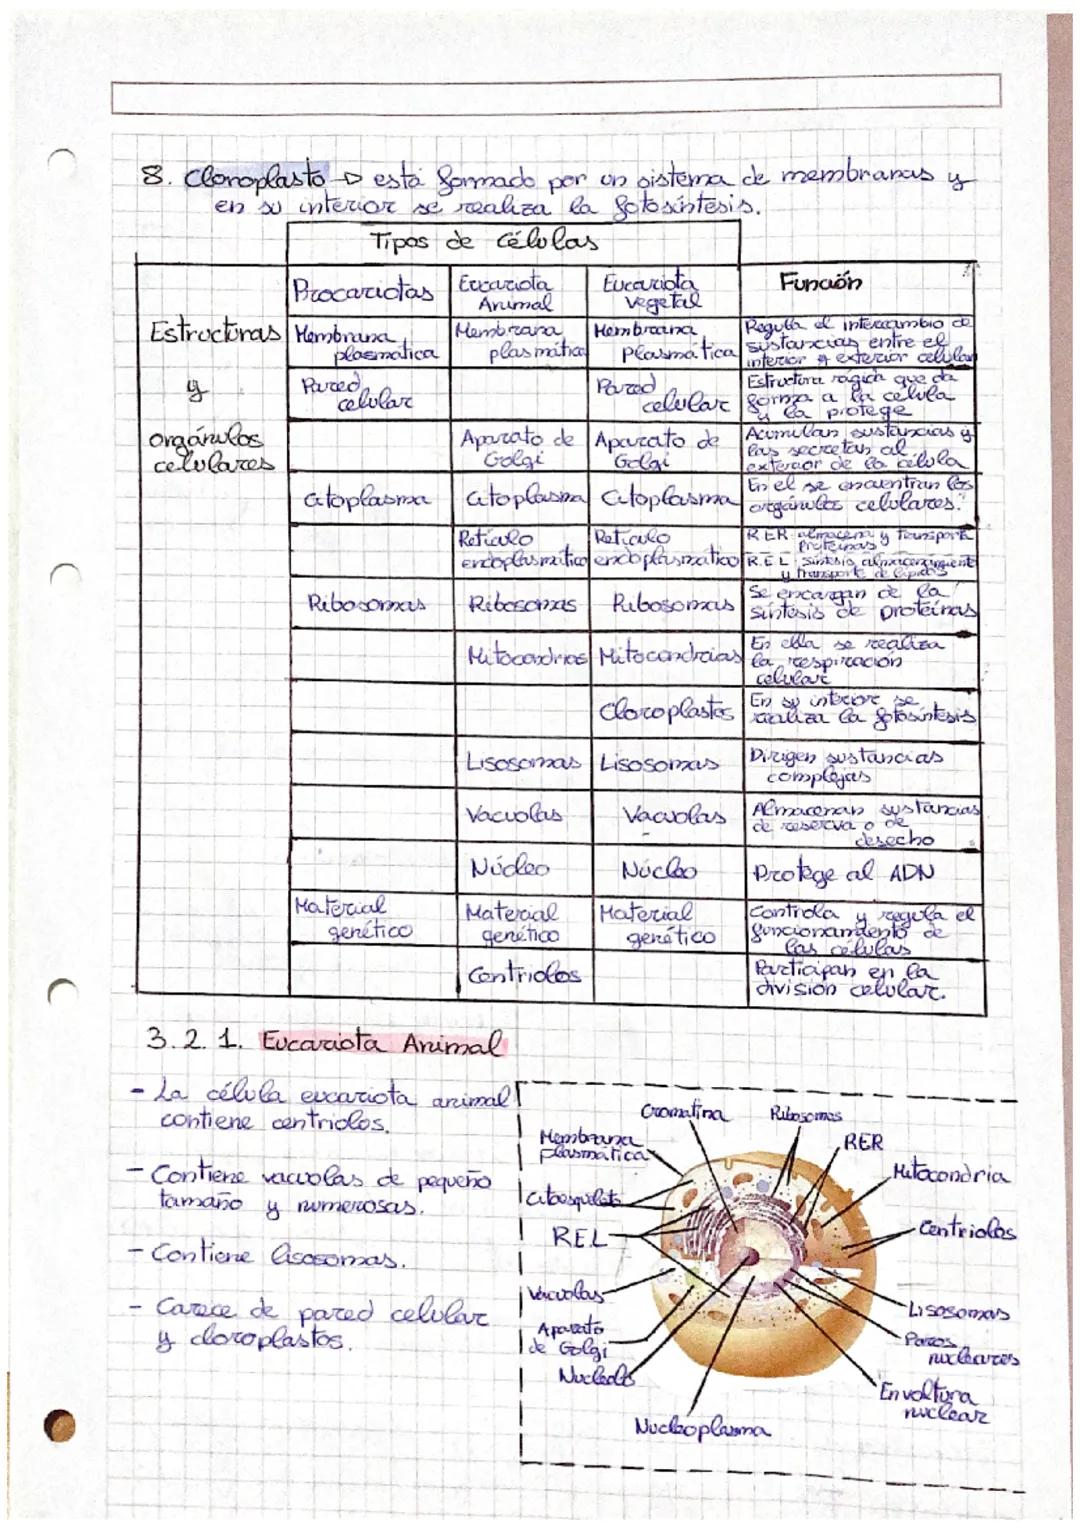 8. Cloroplasto → está formado por un sistema de membranas y
en su interior se realiza la fotosíntesis.
Tipos de Células
Procariotas
Eucariota
Animal
Eucariota
Vegetal
Función
Estructuras
y
orgánulos
celulares
Membrana
plasmática
Membrana
plasmática
Membrana
plasmática
Regula el intercambio de
sustancias entre el
interior y exterior celular
Pared
celular
Pared
celular
Estructura rígida que da
forma a la célula
y la protege
Aparato de
Golgi
Aparato de
Golgi
Acumulan sustancias y
las secretan al
exterior de la célula
Citoplasma
Citoplasma
Citoplasma
En el se encuentran los
orgánulos celulares.
Retículo
endoplasmático
Retículo
endoplasmático
RER almacena y transporte
Proteínas
R.E.L síntesis, almacenamiento
y transporte de lípidos
Ribosomas
Ribosomas
Ribosomas
Se encargan de la
síntesis de proteínas
Mitocondrias
Mitocondrias
En ella se realiza
la respiración
celular
Cloroplastos
En su interior se
realiza la fotosíntesis
Lisosomas
Lisosomas
Dirigen sustancias
complejas
Vacuolas
Vacuolas
Almacenan sustancias
de reserva o de
desecho
Núcleo
Núcleo
Protege al ADN
Material
genético
Material
genético
Material
genético
Controla y regula el
funcionamiento de
las células
Centriolos
Participan en la
división celular.
3.2.1. Eucariota Animal
- La célula eucariota animal
contiene centriolos.
- Contiene vacuolas de pequeño
tamaño y numerosas.
- Contiene lisosomas.
- Carece de pared celular
y cloroplastos.
Cromatina
Ribosomas
Membrana
plasmática
RER
Mitocondria
Citoesqueleto
Centriolos
REL
Vacuolas
Lisosomas
Aparato
de Golgi
Poros
nucleares
Nucleolo
Envoltura
nuclear
Nucleoplasma